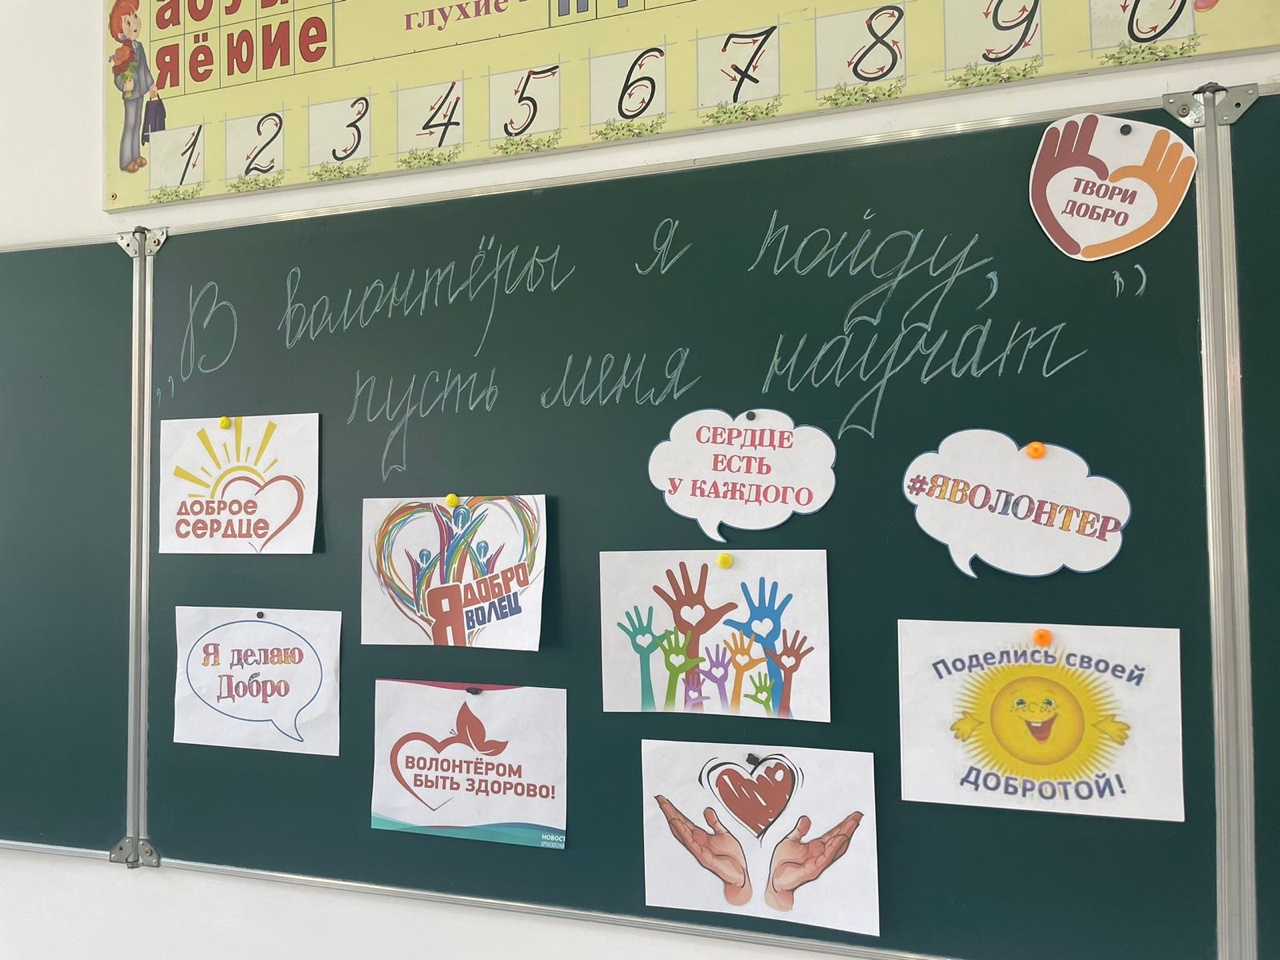 яёюие
глухие -
1 2 3 4 5 6 7 8 9 0
ТВОРИ
ДОБРО
„В волонтёры я пойду,
пусть меня научат"
ДОБРОЕ
СЕРДЦЕ
Я ДОБРО
ВОЛЕЦ
СЕРДЦЕ
ЕСТЬ
У КАЖДОГО
#ЯВОЛОНТЕР
Я делаю
Добро
ВОЛОНТЁРОМ
БЫТЬ ЗДОРОВО!
Поделись своей
ДОБРОТОЙ!